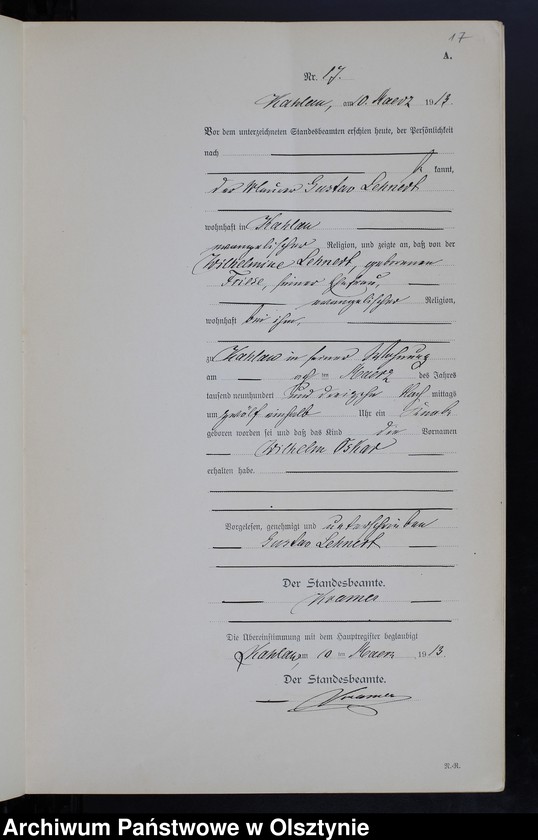 17
A.
Nr. 17.
Kahlau, am 10. Maerz 1913.
Vor dem unterzeichneten Standesbeamten erschien heute, der Persönlichkeit
nach
kannt,
der Maurer Gustav Lehnert
wohnhaft in Kahlau
evangelischer Religion, und zeigte an, daß von der
Wilhelmine Lehnert, geborenen
Friese, seiner Ehefrau,
evangelischer Religion,
wohnhaft bei ihm,
zu Kahlau in seiner Wohnung
am im Maerz des Jahres
tausend neunhundert und dreizehn Nach mittags
um zwölf einhalb Uhr ein Knabe
geboren worden sei und daß das Kind die Vornamen
Wilhelm Oskar
erhalten habe.
Vorgelesen, genehmigt und unterschrieben
Gustav Lehnert
Der Standesbeamte.
Kramer
Die Übereinstimmung mit dem Hauptregister beglaubigt
Kahlau, am 10 ten Maerz 1913.
Der Standesbeamte.
Kramer
R.-R.
Archiwum Państwowe w Olsztynie